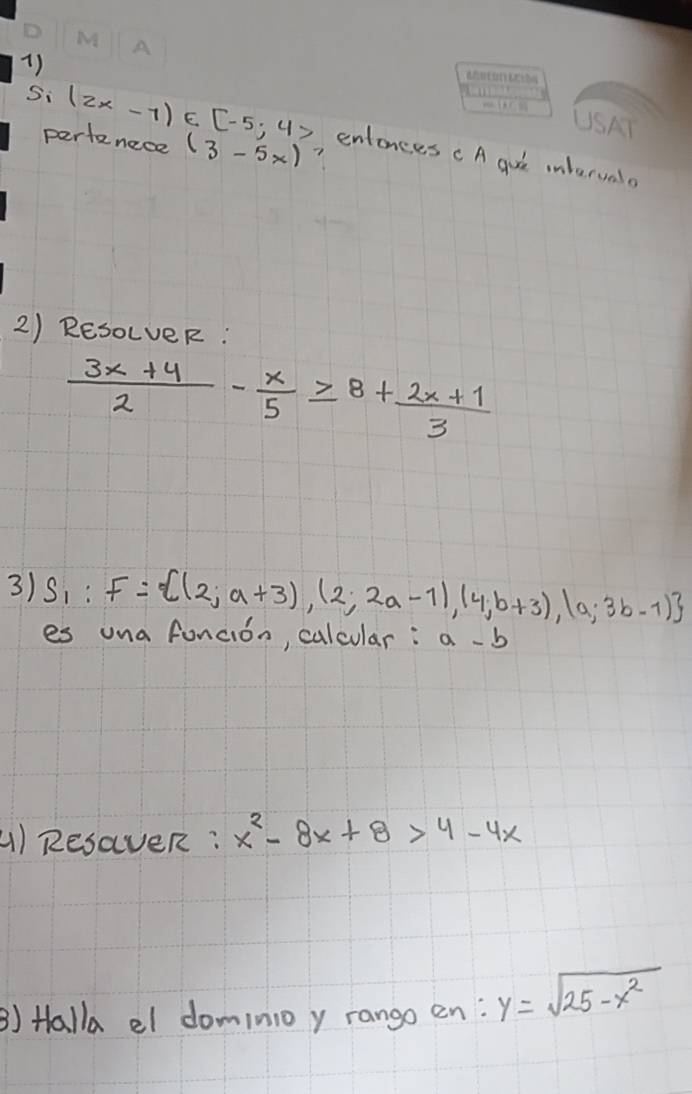 D M A
USAT
1)
Si (2x - 1) ∈ [-5; 4> entonces ¿A qué intervalo
pertenece (3 - 5x)?
2) RESOLVER:
\frac{3x + 4}{2} - \frac{x}{5} ≥ 8 + \frac{2x + 1}{3}
3) Si: F = {(2; a+3), (2; 2a-1), (4; b+3), (a; 3b-1)}
es una función, calcular: a - b
4) Resolver: x² - 8x + 8 > 4 - 4x
3) Halla el dominio y rango en: y = √(25 - x²)